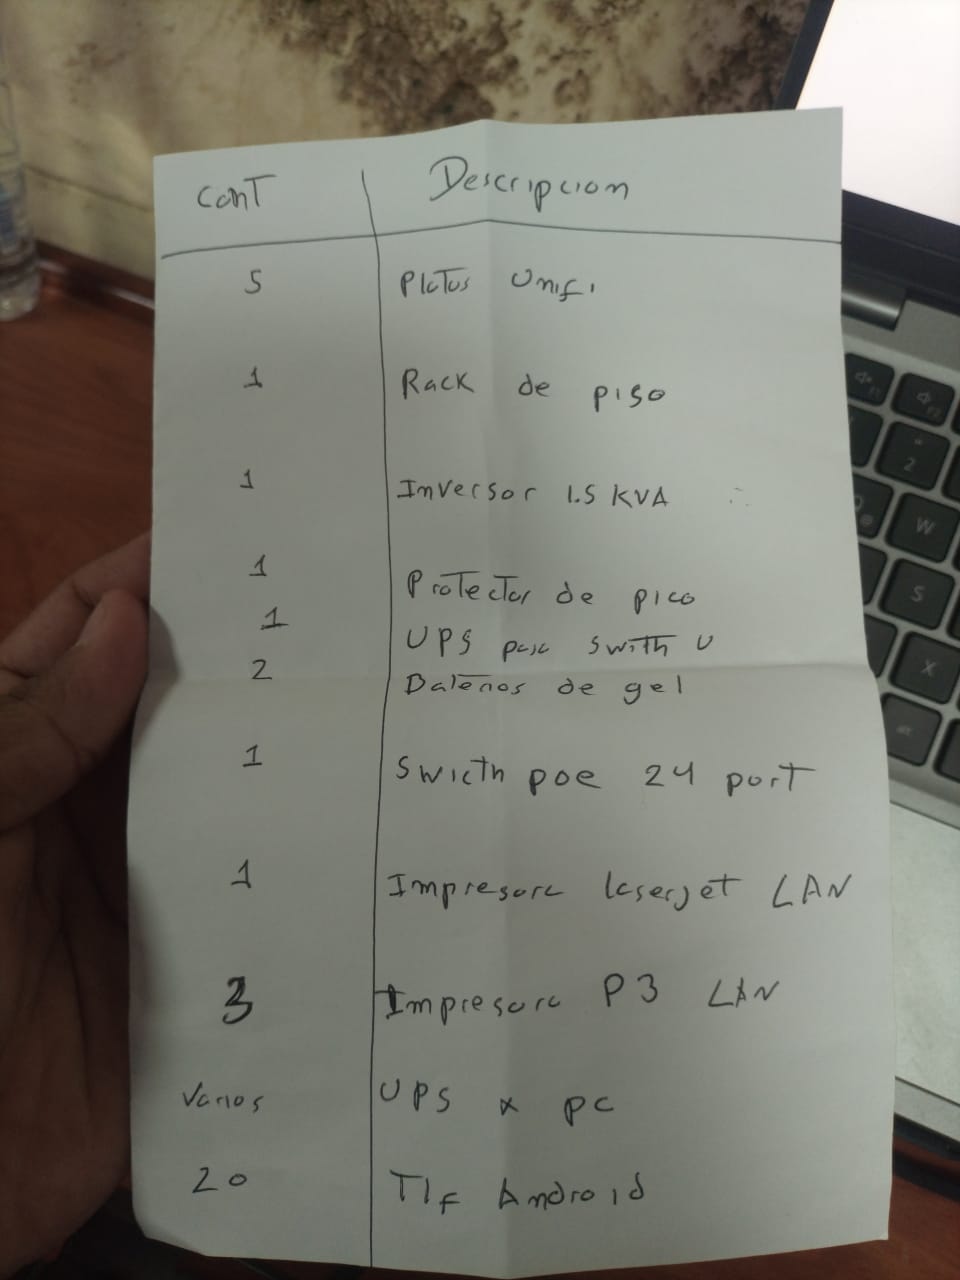 CanT Descripcion
5 Platos Unifi
1 Rack de piso
1 Inversor 1.5 KVA
1 Protector de pico
1 UPS para Swith U
2 Baterias de gel
1 Swicth poe 24 port
1 Impresora laserjet LAN
3 Impresora P3 LAN
Varios UPS x pc
20 Tlf Android